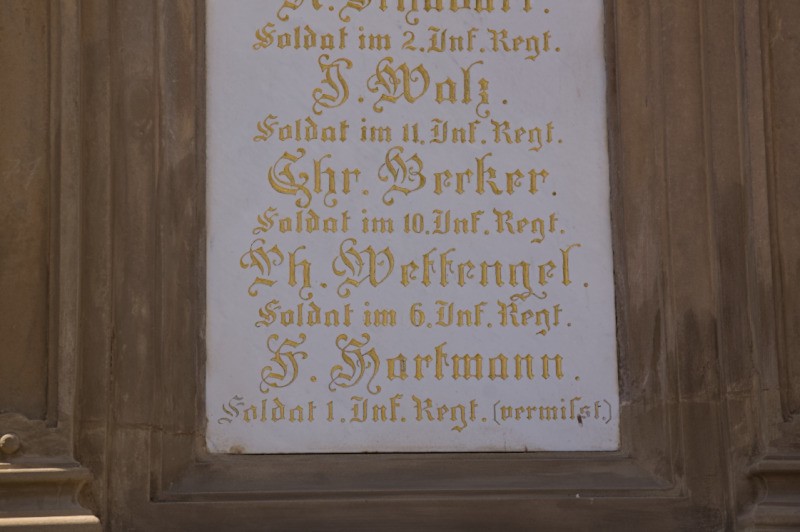 Soldat im 2. Inf. Regt.
J. Walz.
Soldat im 11. Inf. Regt.
Chr. Berker.
Soldat im 10. Inf. Regt.
Ph. Wettengel.
Soldat im 6. Inf. Regt.
F. Hartmann.
Soldat 1. Inf. Regt. (vermisst.)